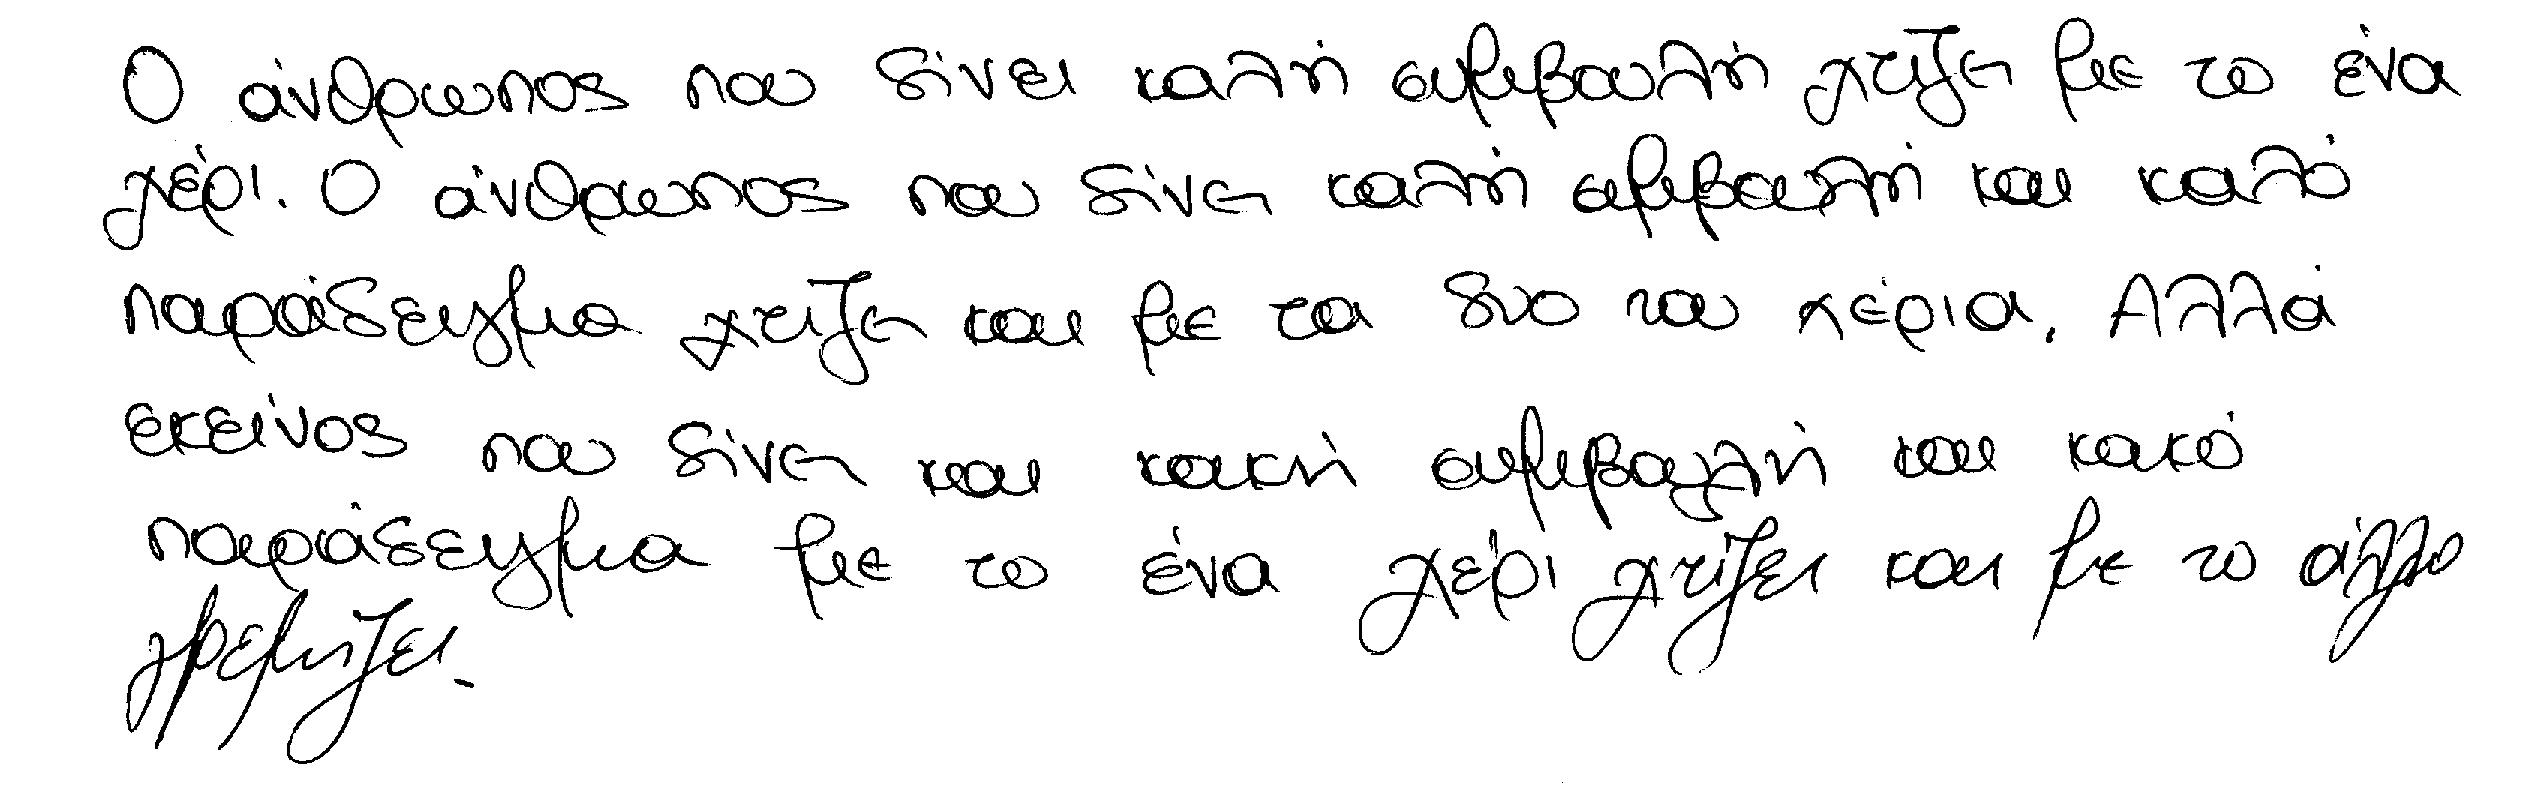 Ο άνθρωπος που δίνει καλή συμβουλή χτίζει με το ένα
χέρι. Ο άνθρωπος που δίνει καλή συμβουλή και καλό
παράδειγμα χτίζει και με τα δυο του χέρια. Αλλά
εκείνος που δίνει και κακή συμβουλή και κακό
παράδειγμα με το ένα χέρι χτίζει και με το άλλο
γρεμίζει.